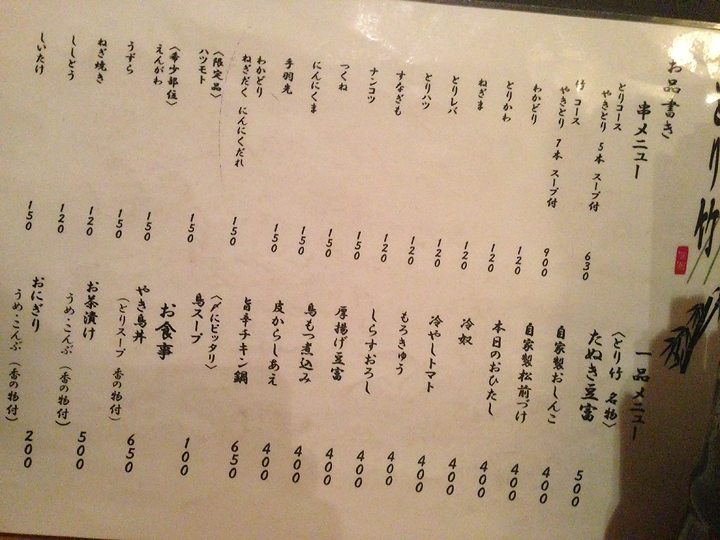 とり竹
お品書き
串メニュー
とりコース
やきとり 5本 スープ付 630
竹コース
やきとり 7本 スープ付 900
わかどり 120
とりかわ 120
ねぎま 120
とりレバ 120
とりハツ 120
すなぎも 120
ナンコツ 120
つくね 150
にんにくま 150
手羽先 150
わかどり 150
ねぎだく にんにくだれ 150
〈限定品〉
ハツモト 150
〈希少部位〉
えんがわ 150
うずら 150
ねぎ焼き 120
ししとう 120
しいたけ 150
一品メニュー
〈とり竹 名物〉
たぬき豆富 500
自家製おしんこ 400
自家製松前づけ 400
本日のおひたし 400
冷奴 400
冷やしトマト 400
もろきゅう 400
しらすおろし 400
厚揚げ豆富 400
鳥もつ煮込み 400
皮からしあえ 400
旨辛チキン鍋 650
〈〆にピッタリ〉
鳥スープ 100
お食事
やき鳥丼 650
(とりスープ 香の物付)
お茶漬け 500
うめ・こんぶ (香の物付)
おにぎり 200
うめ・こんぶ (香の物付)